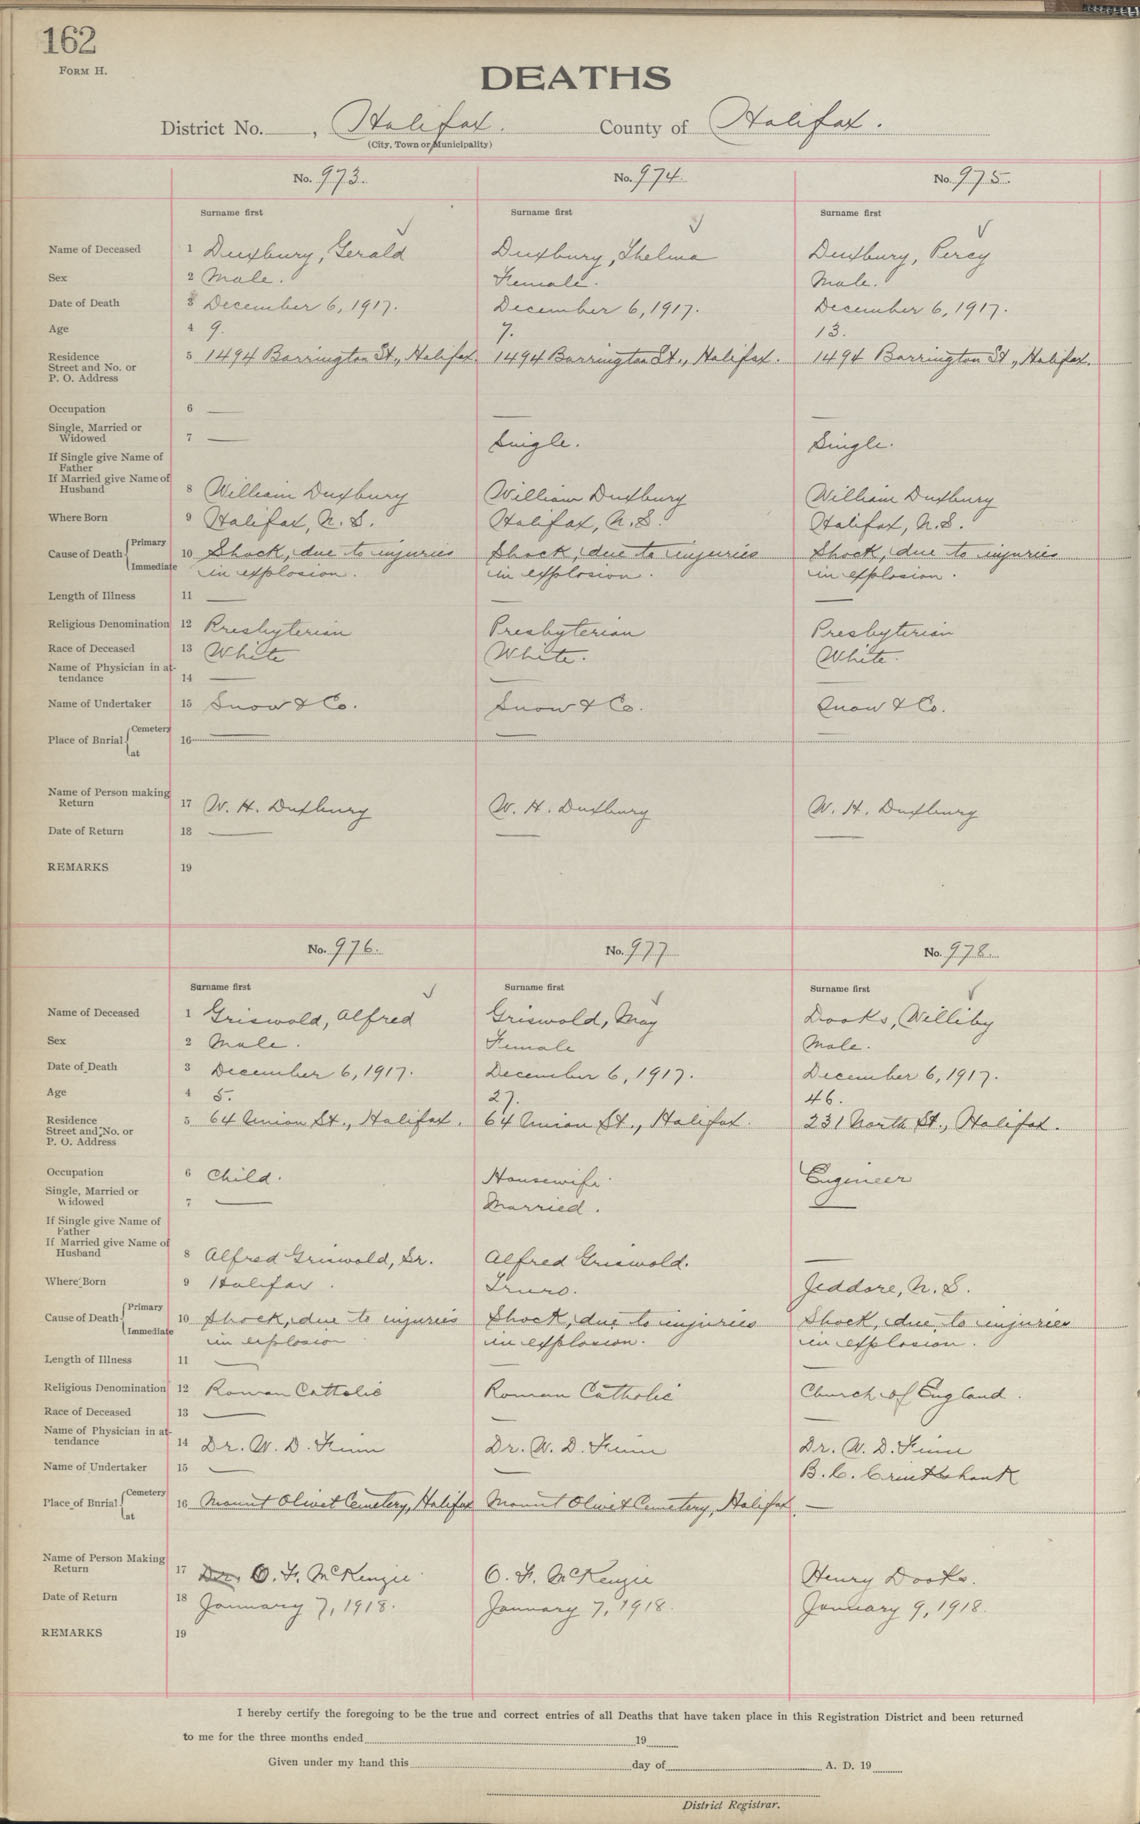 162
FORM H.
DEATHS
District No. , Halifax. County of Halifax.
(City, Town or Municipality)
No. 973. No. 974. No. 975.
Surname first Surname first Surname first
Name of Deceased 1 Duxbury, Gerald Duxbury, Thelma Duxbury, Percy
Sex 2 Male. Female. Male.
Date of Death 3 December 6, 1917. December 6, 1917. December 6, 1917.
Age 4 9. 7. 13.
Residence Street and No. or P. O. Address 5 1494 Barrington St., Halifax. 1494 Barrington St., Halifax. 1494 Barrington St., Halifax.
Occupation 6 — — —
Single, Married or Widowed 7 — Single. Single.
If Single give Name of Father
If Married give Name of Husband 8 William Duxbury William Duxbury William Duxbury
Where Born 9 Halifax, N. S. Halifax, N. S. Halifax, N. S.
Cause of Death { Primary Immediate 10 Shock, due to injuries Shock, due to injuries Shock, due to injuries
in explosion. in explosion. in explosion.
Length of Illness 11 — — —
Religious Denomination 12 Presbyterian Presbyterian Presbyterian
Race of Deceased 13 White White. White.
Name of Physician in attendance 14 — — —
Name of Undertaker 15 Snow & Co. Snow & Co. Snow & Co.
Place of Burial { Cemetery at 16 — — —
Name of Person making Return 17 W. H. Duxbury W. H. Duxbury W. H. Duxbury
Date of Return 18 — — —
REMARKS 19
No. 976. No. 977 No. 978.
Surname first Surname first Surname first
Name of Deceased 1 Griswold, Alfred Griswold, May Dooks, Williby
Sex 2 Male. Female Male.
Date of Death 3 December 6, 1917. December 6, 1917. December 6, 1917.
Age 4 5. 27. 46.
Residence Street and No. or P. O. Address 5 64 Union St., Halifax. 64 Union St., Halifax. 231 North St., Halifax.
Occupation 6 Child. Housewife. Engineer
Single, Married or Widowed 7 — Married. —
If Single give Name of Father
If Married give Name of Husband 8 Alfred Griswold, Sr. Alfred Griswold. —
Where Born 9 Halifax. Truro. Jeddore, N. S.
Cause of Death { Primary Immediate 10 Shock, due to injuries Shock, due to injuries Shock, due to injuries
in explosion in explosion. in explosion.
Length of Illness 11 — — —
Religious Denomination 12 Roman Catholic Roman Catholic Church of England.
Race of Deceased 13 — — —
Name of Physician in attendance 14 Dr. W. D. Finn Dr. W. D. Finn Dr. W. D. Finn
Name of Undertaker 15 — — B. C. Cruikshank
Place of Burial { Cemetery at 16 Mount Olivet Cemetery, Halifax Mount Olivet Cemetery, Halifax. —
Name of Person Making Return 17 Dr. O. F. McKenzie O. F. McKenzie Henry Dooks.
Date of Return 18 January 7, 1918. January 7, 1918. January 9, 1918.
REMARKS 19
I hereby certify the foregoing to be the true and correct entries of all Deaths that have taken place in this Registration District and been returned
to me for the three months ended 19
Given under my hand this day of A. D. 19
District Registrar.